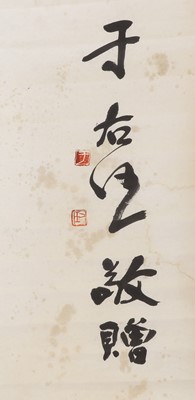 于右任敬贈